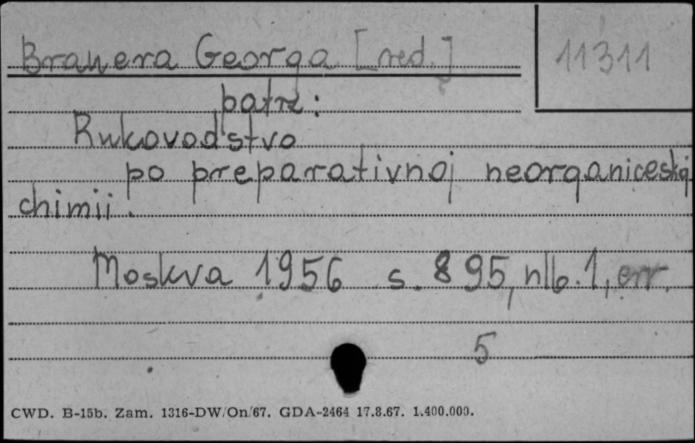 Brauera Georga [red.]
11311
patrz:
Rukovodstvo
po preparativnoj neorganiceskoj
chimii.
Moskva 1956 s. 895, nlb. 1, err.
5
CWD. B-15b. Zam. 1316-DW/On/67. GDA-2464 17.8.67. 1.400.000.